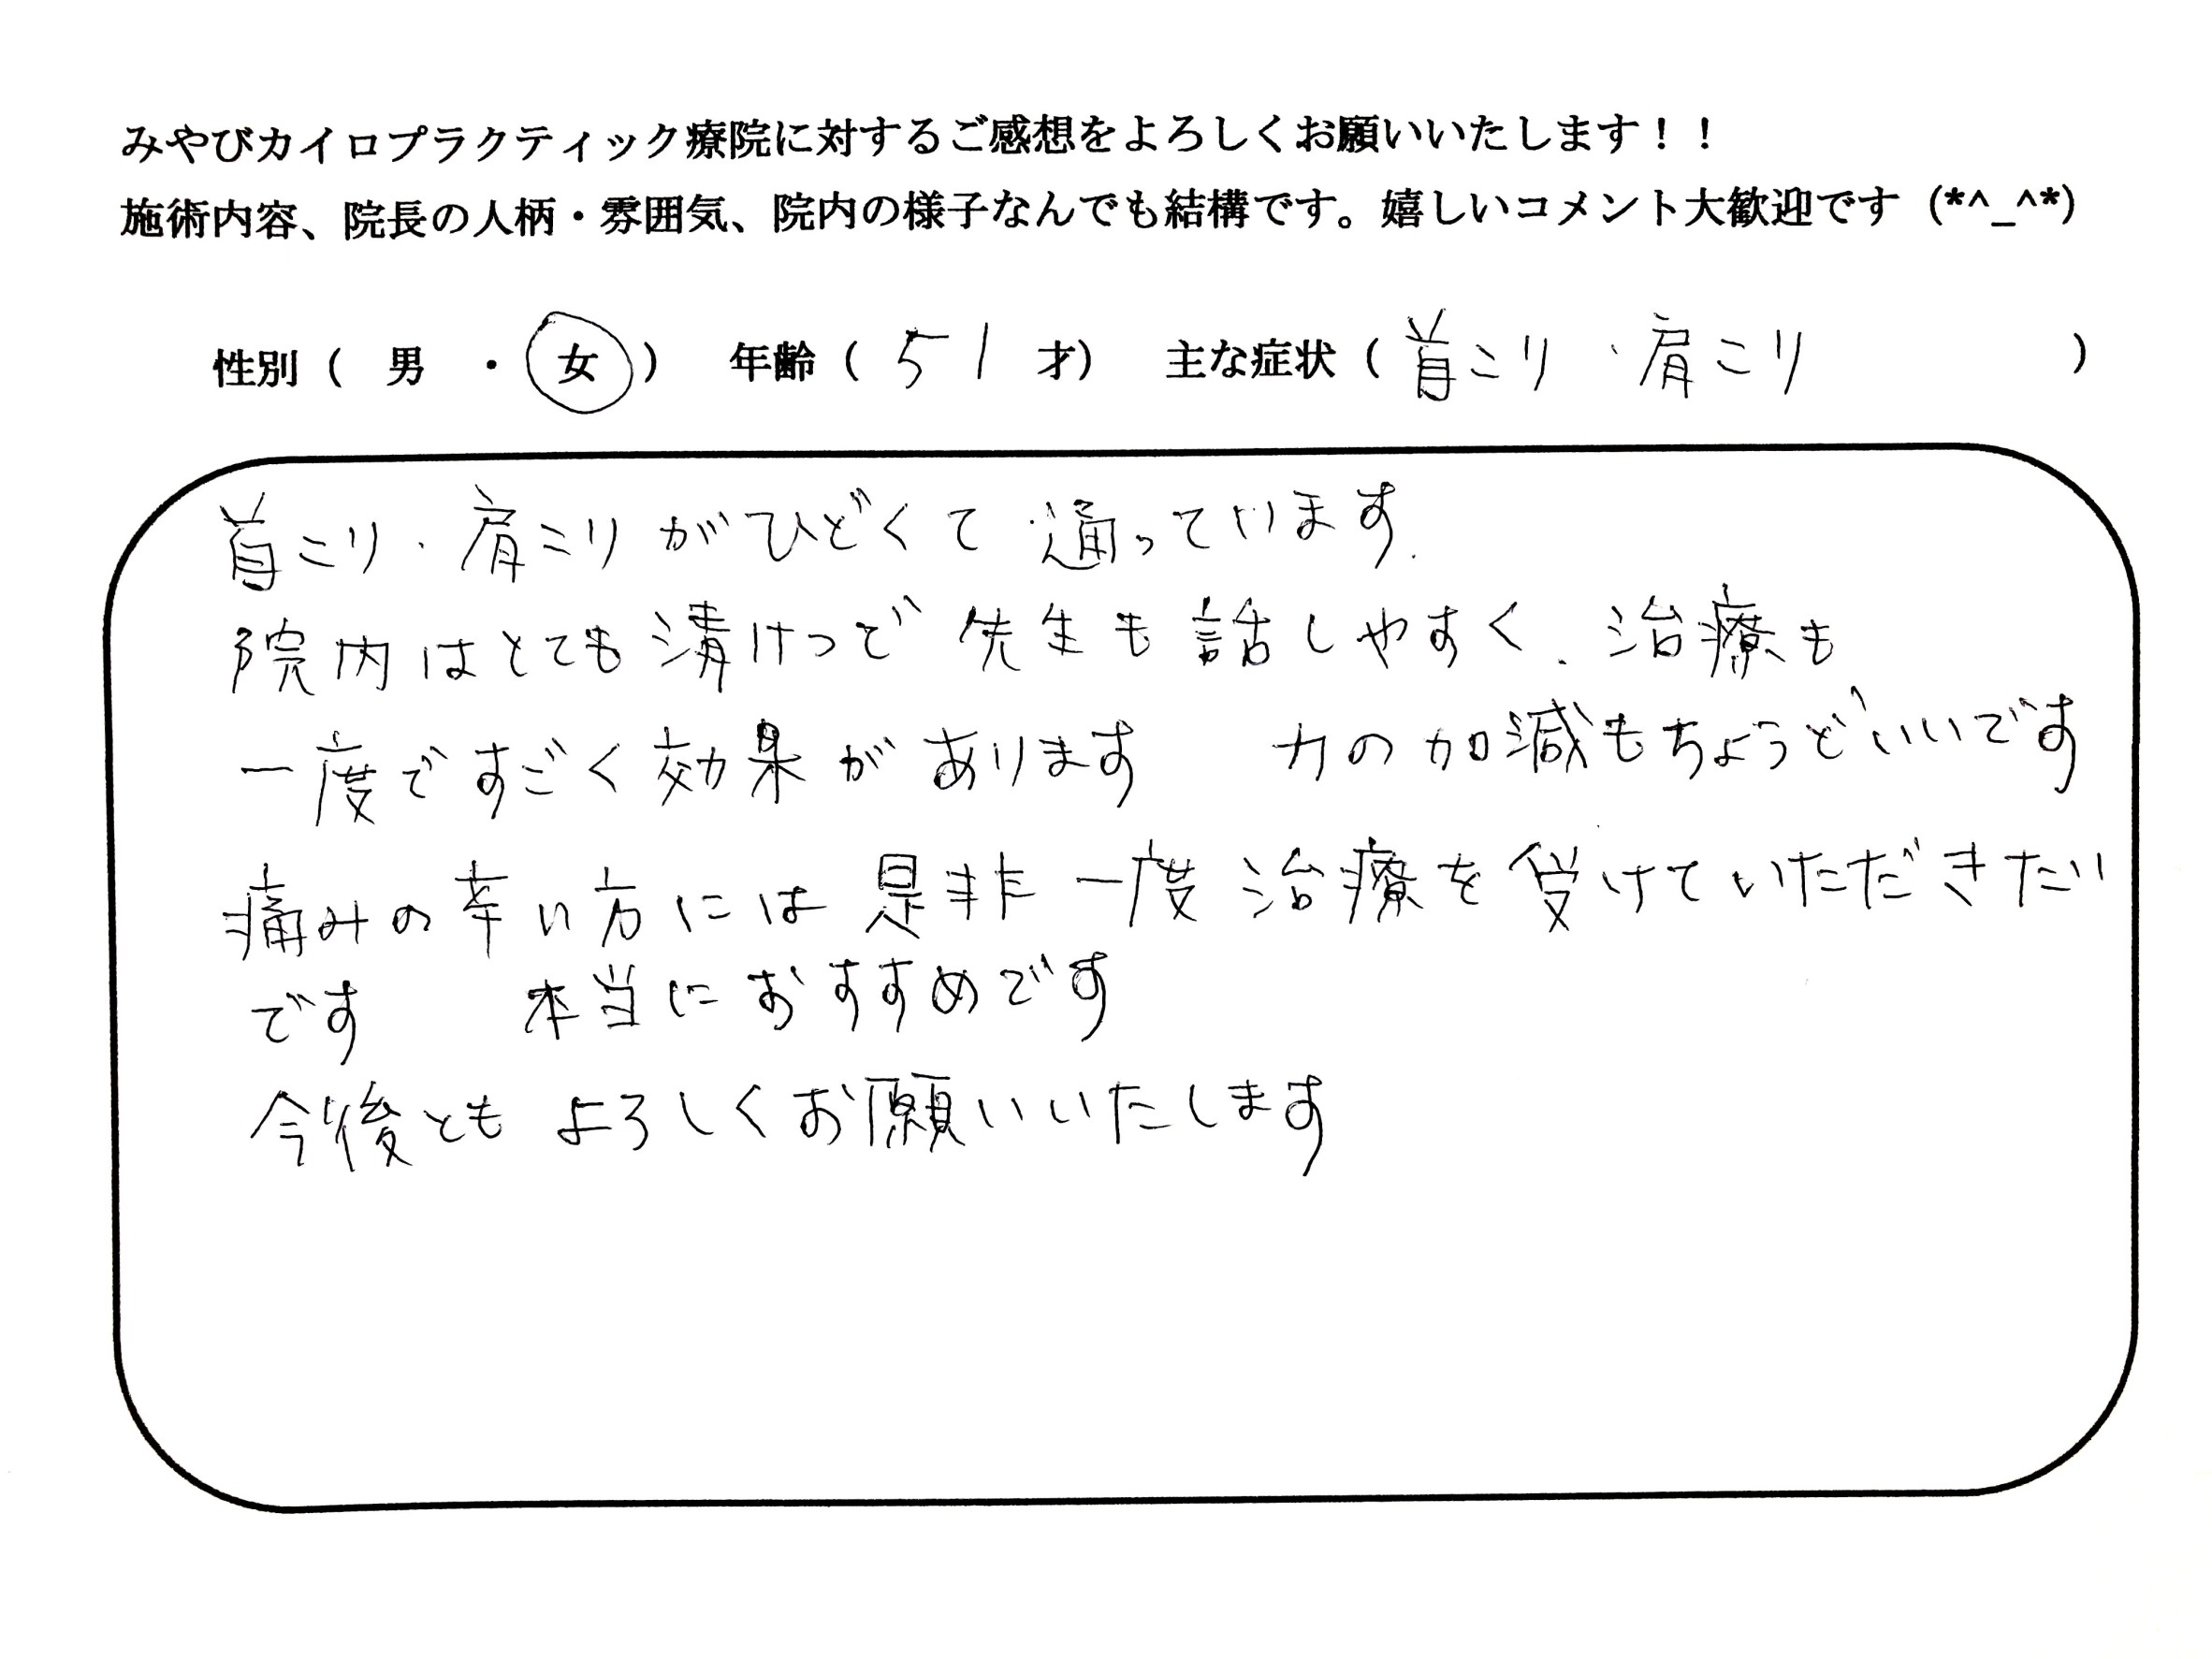 みやびカイロプラクティック療院に対するご感想をよろしくお願いいたします！！
施術内容、院長の人柄・雰囲気、院内の様子なんでも結構です。嬉しいコメント大歓迎です（*^_^*）
性別（ 男 ・ 女 ） 年齢（ 51 才） 主な症状（ 首こり・肩こり ）
首こり・肩こりがひどくて通っています。
院内はとても清けつで先生も話しやすく、治療も
一度ですごく効果があります 力の加減もちょうどいいです
痛みの辛い方には是非一度治療を受けていただきたい
です 本当におすすめです
今後ともよろしくお願いいたします